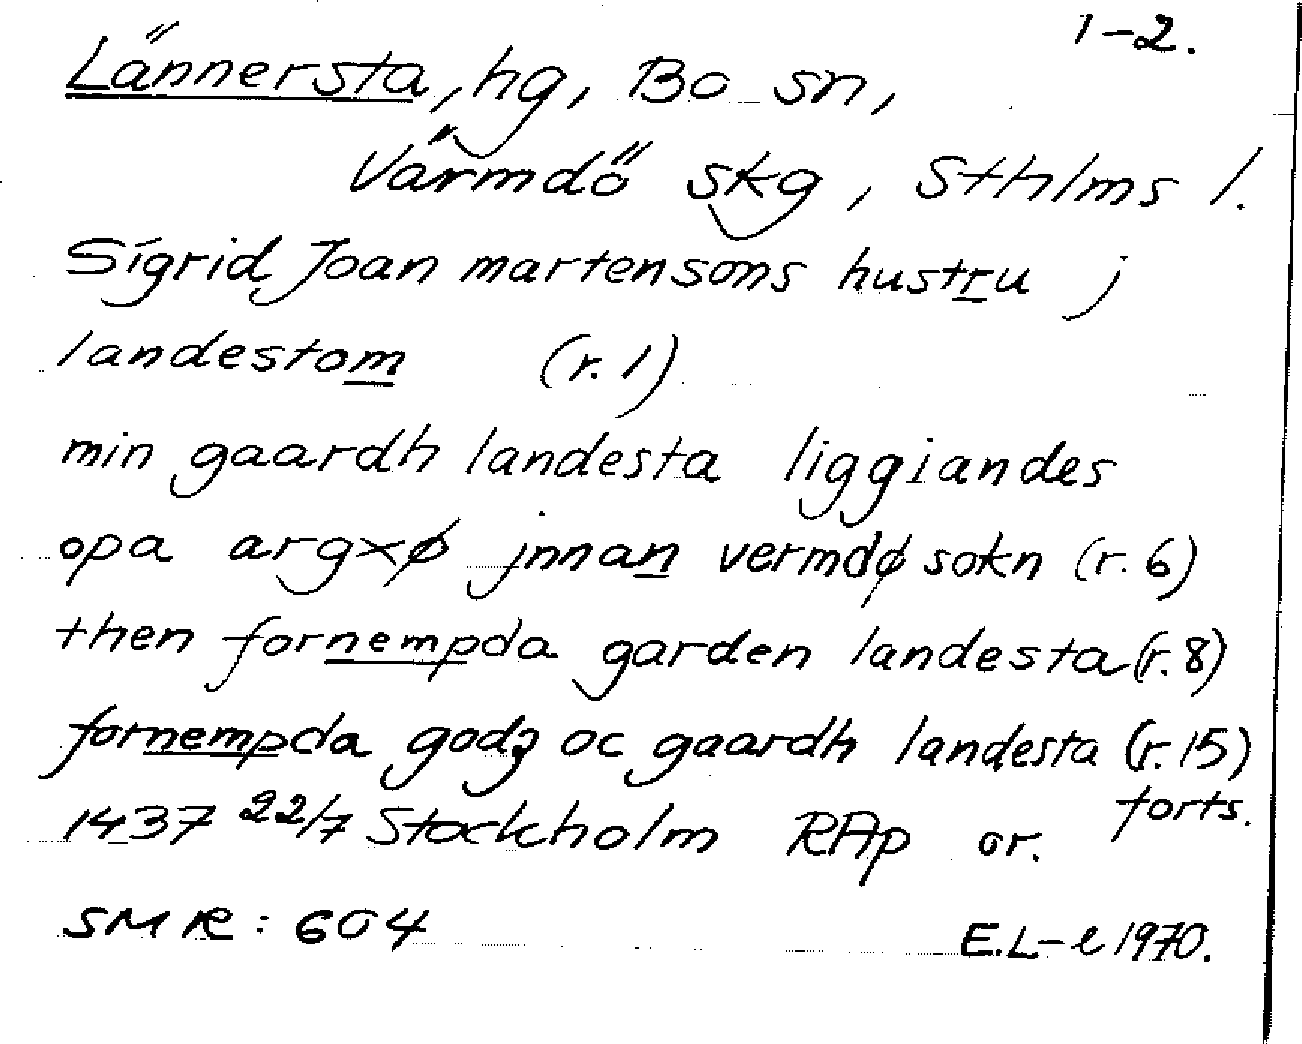 1-2.
Lännersta, hg, Bo sn,
Värmdö skg, Sthlms l.
Sigrid Joan martensons hustru j
landestom (r. 1)
min gaardh landesta liggiandes
opa argxø jnnan vermdø sokn (r. 6)
then fornempda garden landesta (r. 8)
fornempda godz oc gaardh landesta (r. 15)
forts.
1437 22/7 Stockholm RAp or.
SMR: 604 E.L-e 1970.